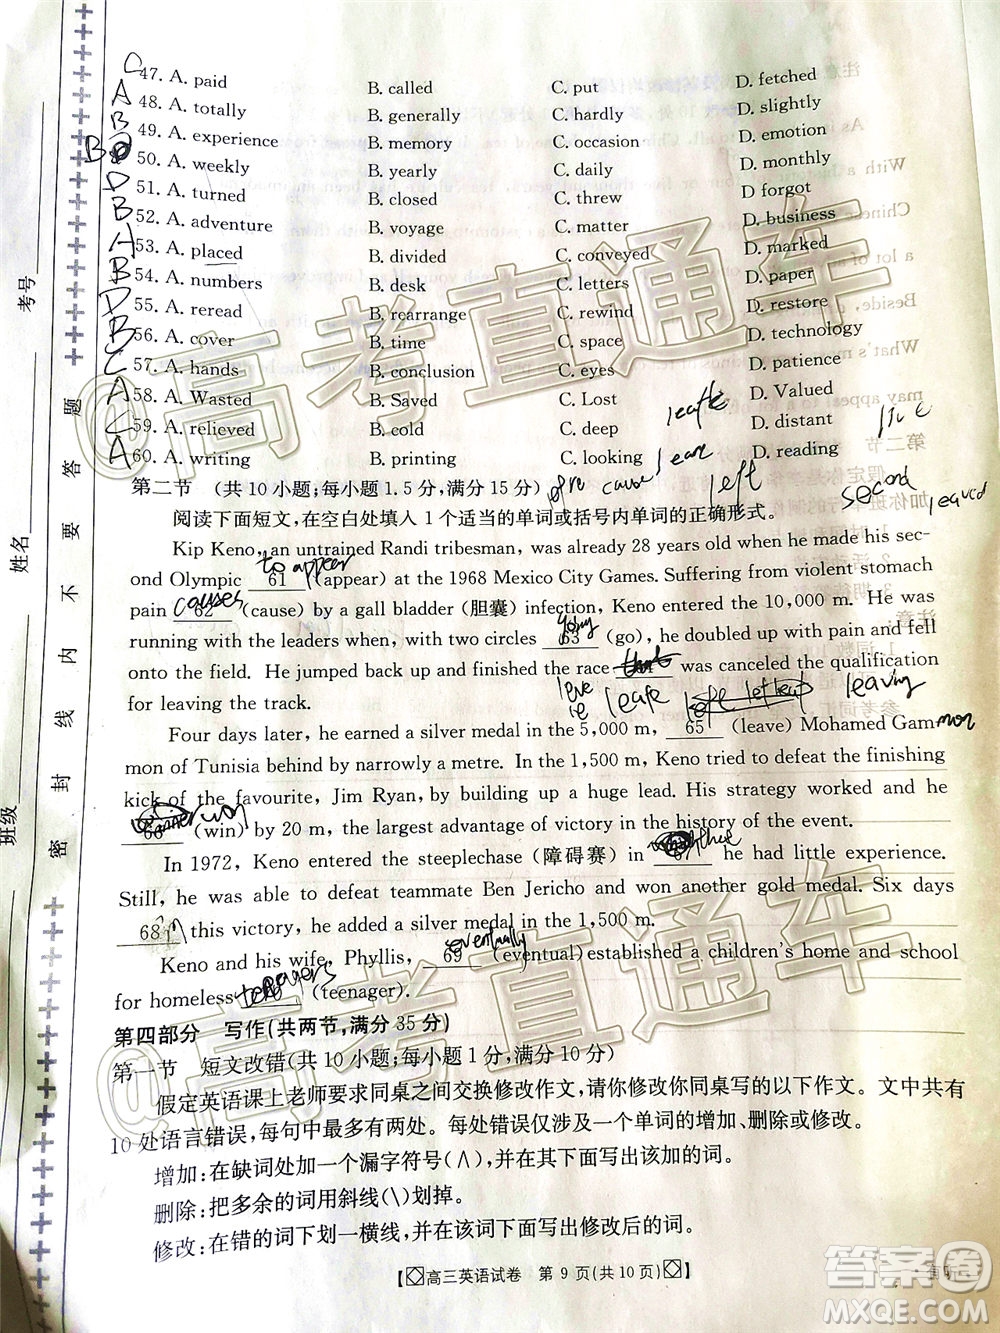 C 47. A. paid B. called C. put D. fetched
A 48. A. totally B. generally C. hardly D. slightly
B 49. A. experience B. memory C. occasion D. emotion
B 50. A. weekly B. yearly C. daily D. monthly
D 51. A. turned B. closed C. threw D forgot
B 52. A. adventure B. voyage C. matter D. business
A 53. A. placed B. divided C. conveyed D. marked
B 54. A. numbers B. desk C. letters D. paper
D 55. A. reread B. rearrange C. rewind D. restore
B 56. A. cover B. time C. space D. technology
C 57. A. hands B. conclusion C. eyes D. patience
A 58. A. Wasted B. Saved C. Lost D. Valued
C 59. A. relieved B. cold C. deep D. distant
A 60. A. writing B. putting C. looking D. reading
第二节 (共 10 小题;每小题 1.5 分,满分 15 分)
阅读下面短文,在空白处填入 1 个适当的单词或括号内单词的正确形式。
Kip Keno, an untrained Randi tribesman, was already 28 years old when he made his sec-
to appear
ond Olympic 61 (appear) at the 1968 Mexico City Games. Suffering from violent stomach
causes
pain 62 (cause) by a gall bladder (胆囊) infection, Keno entered the 10,000 m. He was
going
running with the leaders when, with two circles 63 (go), he doubled up with pain and fell
onto the field. He jumped back up and finished the race was canceled the qualification
for leaving the track.
leaving
Four days later, he earned a silver medal in the 5,000 m, 65 (leave) Mohamed Gam-
mon of Tunisia behind by narrowly a metre. In the 1,500 m, Keno tried to defeat the finishing
kick of the favourite, Jim Ryan, by building up a huge lead. His strategy worked and he
won
66 (win) by 20 m, the largest advantage of victory in the history of the event.
In 1972, Keno entered the steeplechase (障碍赛) in that he had little experience.
Still, he was able to defeat teammate Ben Jericho and won another gold medal. Six days
68 in this victory, he added a silver medal in the 1,500 m.
eventually
Keno and his wife, Phyllis, 69 (eventual) established a children's home and school
teenagers
for homeless (teenager).
第四部分 写作(共两节,满分 35 分)
第一节 短文改错(共 10 小题;每小题 1 分,满分 10 分)
假定英语课上老师要求同桌之间交换修改作文,请你修改你同桌写的以下作文。文中共有
10 处语言错误,每句中最多有两处。每处错误仅涉及一个单词的增加、删除或修改。
增加:在缺词处加一个漏字符号(∧),并在其下面写出该加的词。
删除:把多余的词用斜线(\)划掉。
修改:在错的词下划一横线,并在该词下面写出修改后的词。
【高三英语试卷 第 9 页(共 10 页)】
考号
姓名
班级
密 封 线 内 不 要 答 题
@高考直通车
@高考直通车
答案圈
MXQE.COM